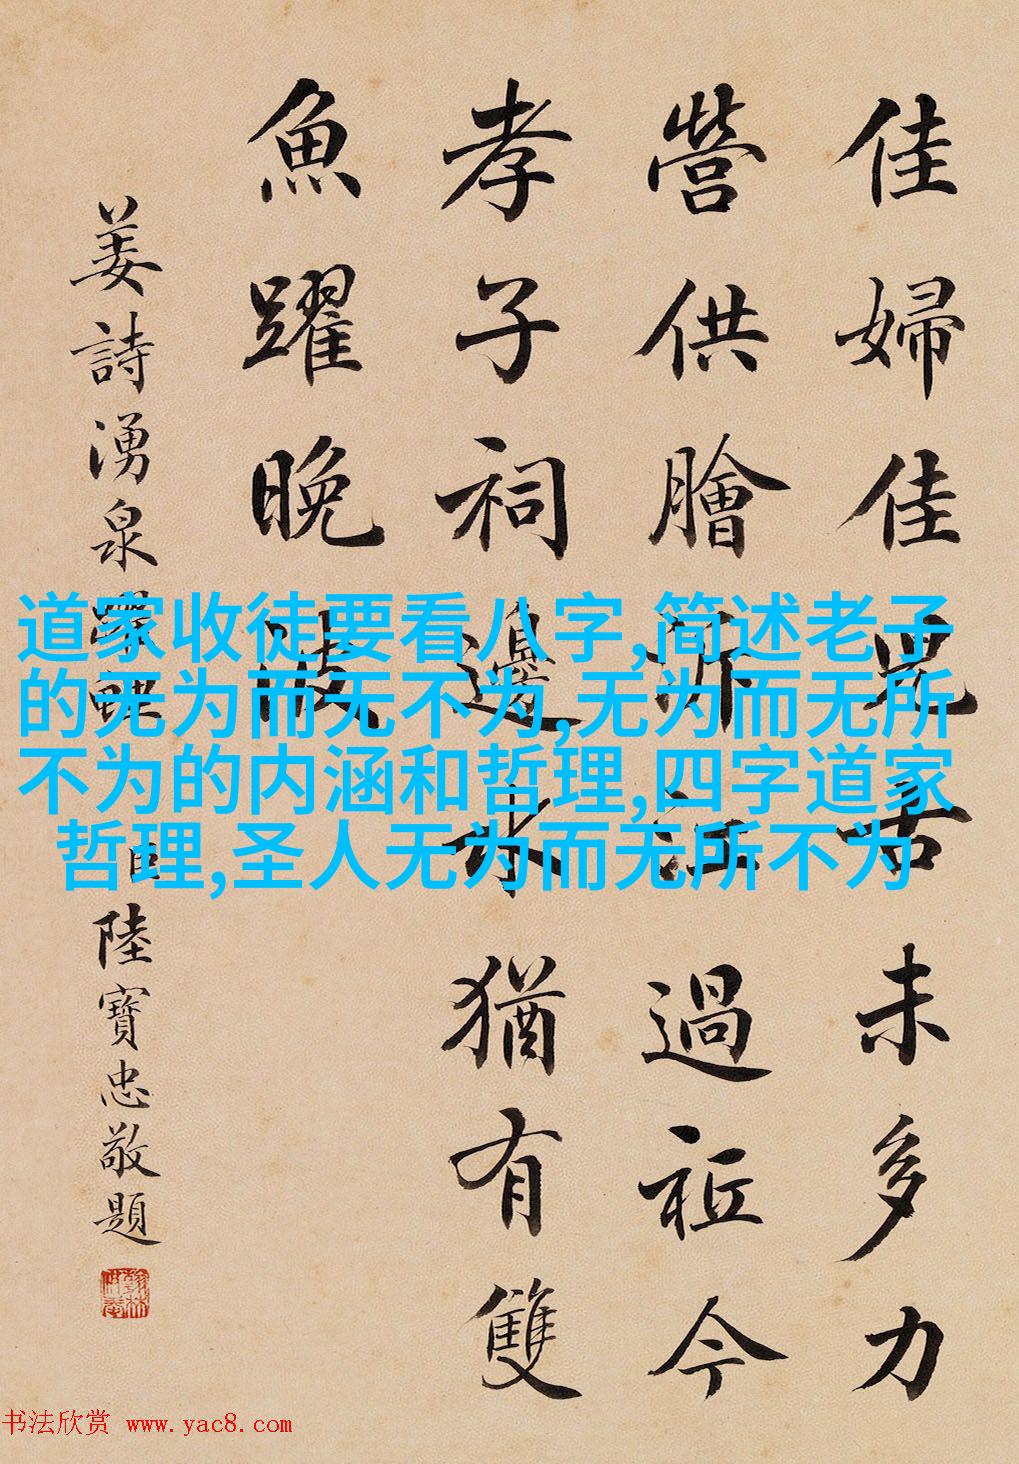 佳婦佳兒古未多力
營供膾泝江過祗今
孝子祠邊水猶有雙
魚躍晚波
姜詩湧泉躍鯉 臣陸寶忠敬題
道家收徒要看八字,简述老子
的无为而无不为,无为而无所
不为的内涵和哲理,四字道家
哲理,圣人无为而无所不为
书法欣赏 www.yac8.com